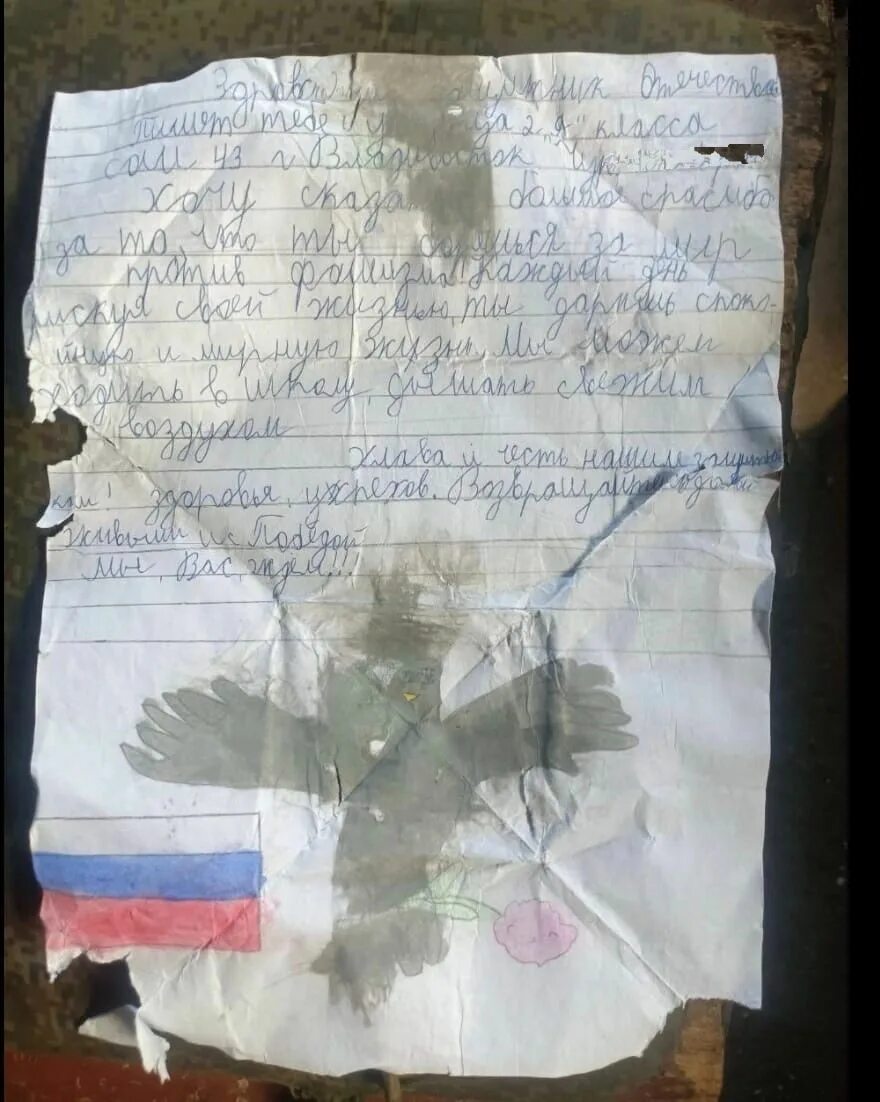 Здравст Отечества
пишет тебе уч ица 2 "Я" класса
сош 43 г Владивосток
Хочу сказа большое спасибо
за то, что ты борешься за мир
против фашизма! Каждый день
рискуя своей жизнью, ты даришь споко-
йную и мирную жизнь. Мы можем
ходить в школу, дышать свежим
воздухом
Слава и честь нашим защитни
кам! Здоровья, успехов. Возвращайтесь домой
живыми и с Победой
Мы Вас ждем...